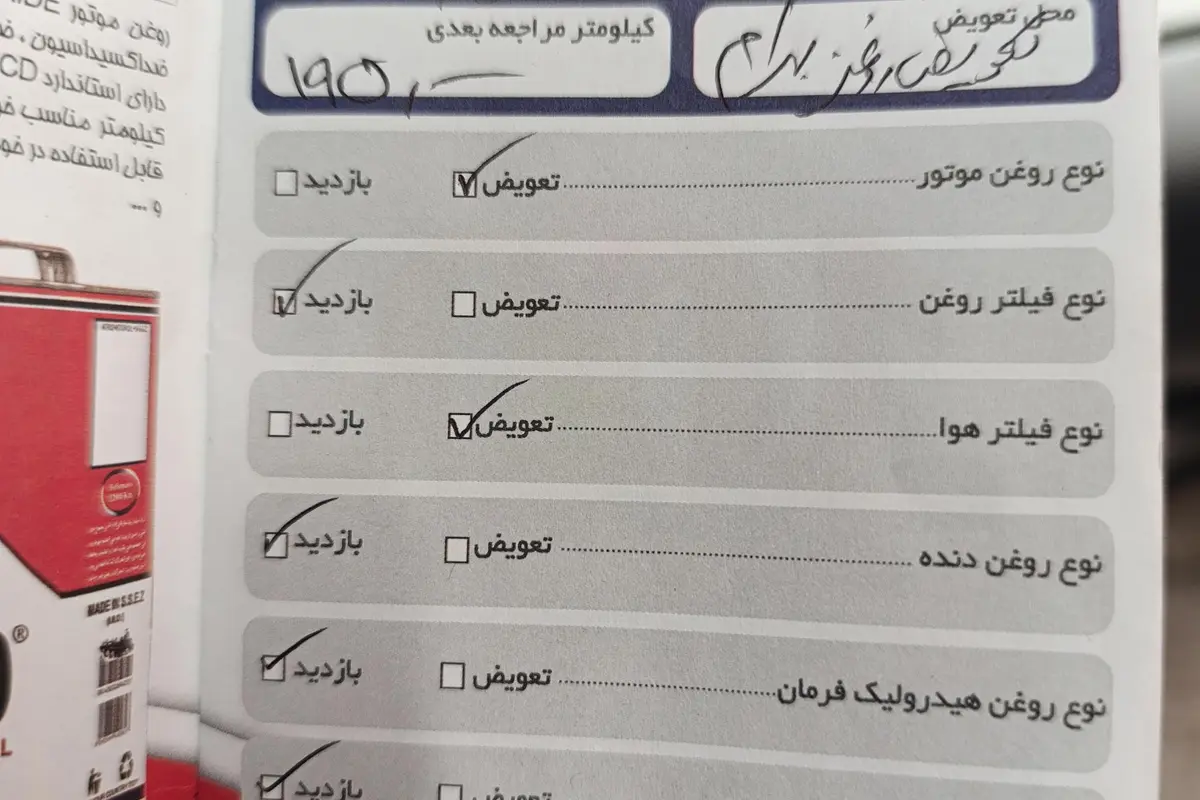 محل تعویض
تعویض روغن بهرام
کیلومتر مراجعه بعدی
۱۹۵،
نوع روغن موتور.......... تعویض ☑ بازدید ☐
نوع فیلتر روغن .......... تعویض ☐ بازدید ☑
نوع فیلتر هوا.......... تعویض ☑ بازدید ☐
نوع روغن دنده .......... تعویض ☐ بازدید ☑
نوع روغن هیدرولیک فرمان.......... تعویض ☐ بازدید ☑
تعویض ☐ بازدید ☑
روغن موتور
ضداکسیداسیون ،
دارای استاندارد CD
کیلومتر مناسب
قابل استفاده در
و ...
MADE IN S.S.E.Z
®
L